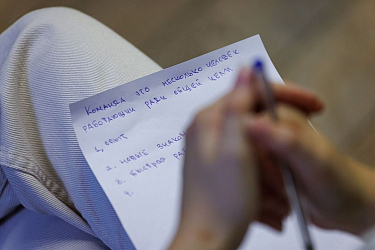 Команда это несколько человек
работающих ради общей цели
1. опыт
2. новые
3. быстрая
4.